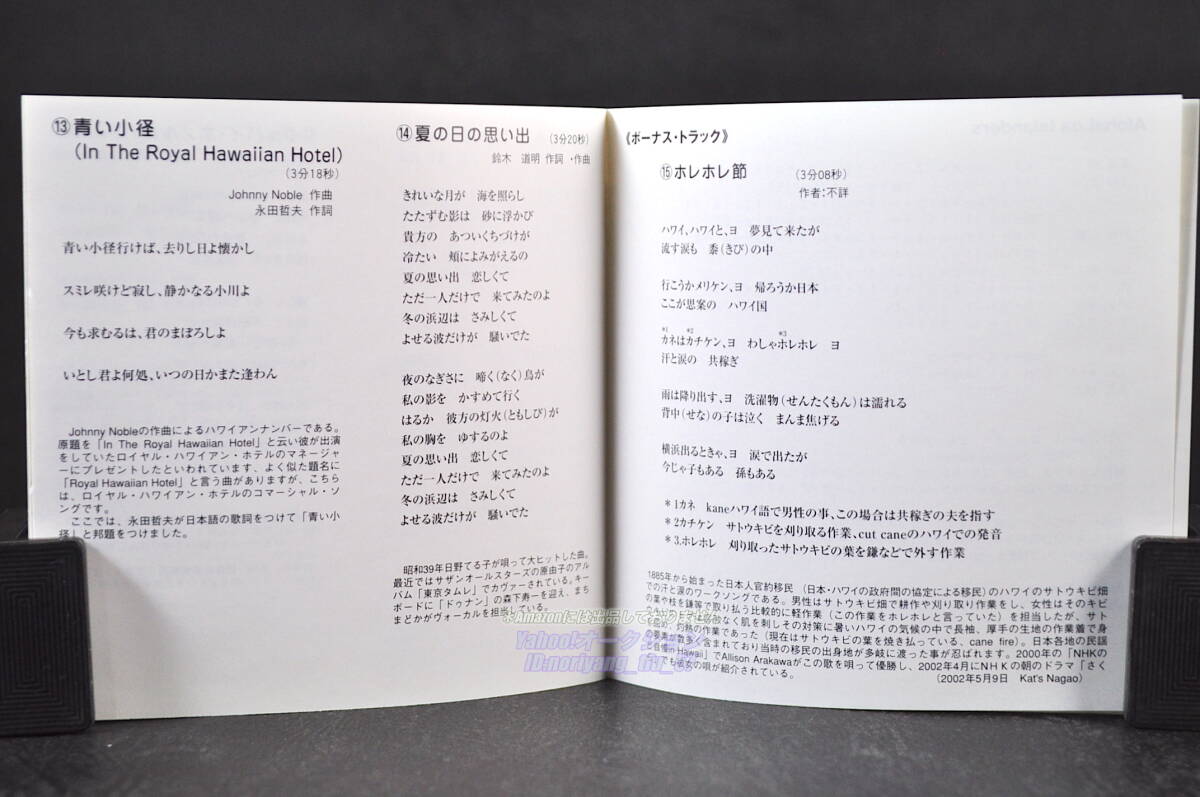 ⑬青い小径
(In The Royal Hawaiian Hotel)
(3分18秒)
Johnny Noble 作曲
永田哲夫 作詞
青い小径行けば、去りし日よ懐かし
スミレ咲けど寂し、静かなる小川よ
今も求むるは、君のまぼろしよ
いとし君よ何処、いつの日かまた逢わん
Johnny Nobleの作曲によるハワイアンナンバーである。
原題を「In The Royal Hawaiian Hotel」と云い彼が出演
をしていたロイヤル・ハワイアン・ホテルのマネージャ
ーにプレゼントしたといわれています、よく似た題名に
「Royal Hawaiian Hotel」と言う曲がありますが、こちら
は、ロイヤル・ハワイアン・ホテルのコマーシャル・ソ
ングです。
ここでは、永田哲夫が日本語の歌詞をつけて「青い小
径」と邦題をつけました。
⑭夏の日の思い出 (3分20秒)
鈴木 道明 作詞・作曲
きれいな月が 海を照らし
たたずむ影は 砂に浮かび
貴方の あついくちづけが
冷たい 頬によみがえるの
夏の思い出 恋しくて
ただ一人だけで 来てみたのよ
冬の浜辺は さみしくて
よせる波だけが 騒いでた
夜のなぎさに 啼く(なく)鳥が
私の影を かすめて行く
はるか 彼方の灯火(ともしび)が
私の胸を ゆするのよ
夏の思い出 恋しくて
ただ一人だけで 来てみたのよ
冬の浜辺は さみしくて
よせる波だけが 騒いでた
昭和39年日野てる子が唄って大ヒットした曲。
最近ではサザンオールスターズの原由子のアル
バム「東京タムレ」でカヴァーされている。キー
ボードに「ドゥナン」の森下寿一を迎え、まち
まどかがヴォーカルを担当している。
《ボーナス・トラック》
⑮ホレホレ節 (3分08秒)
作者:不詳
ハワイ、ハワイと、ヨ 夢見て来たが
流す涙も 黍(きび)の中
行こうかメリケン、ヨ 帰ろうか日本
ここが思案の ハワイ国
*1 *2 *3
カネはカチケン、ヨ わしゃホレホレ ヨ
汗と涙の 共稼ぎ
雨は降り出す、ヨ 洗濯物(せんたくもん)は濡れる
背中(せな)の子は泣く まんま焦げる
横浜出るときゃ、ヨ 涙で出たが
今じゃ子もある 孫もある
*1カネ kaneハワイ語で男性の事、この場合は共稼ぎの夫を指す
*2カチケン サトウキビを刈り取る作業、cut caneのハワイでの発音
*3.ホレホレ 刈り取ったサトウキビの葉を鎌などで外す作業
1885年から始まった日本人官約移民 (日本・ハワイの政府間の協定による移民)のハワイのサトウキビ畑
での汗と涙のワークソングである。男性はサトウキビ畑で耕作や刈り取り作業をし、女性はそのキビ
の葉や枝を鎌等で取り払う比較的に軽作業 (この作業をホレホレと言っていた)を担当したが、サト
なく肌を刺しその対策に暑いハワイの気候の中で長袖、厚手の生地の作業着で身
灼熱の作業であった(現在はサトウキビの葉を焼き払っている、cane fire)。日本各地の民謡
含まれており当時の移民の出身地が多岐に渡った事が忍ばれます。2000年の「NHKの
in Hawaii」でAllison Arakawaがこの歌を唄って優勝し、2002年4月にNHKの朝のドラマ「さく
でも彼女の唄が紹介されている。
(2002年5月9日 Kat's Nagao)
※Amazonには出品しておりません
Yahoo!オークション
ID:noriyang_fiv_o